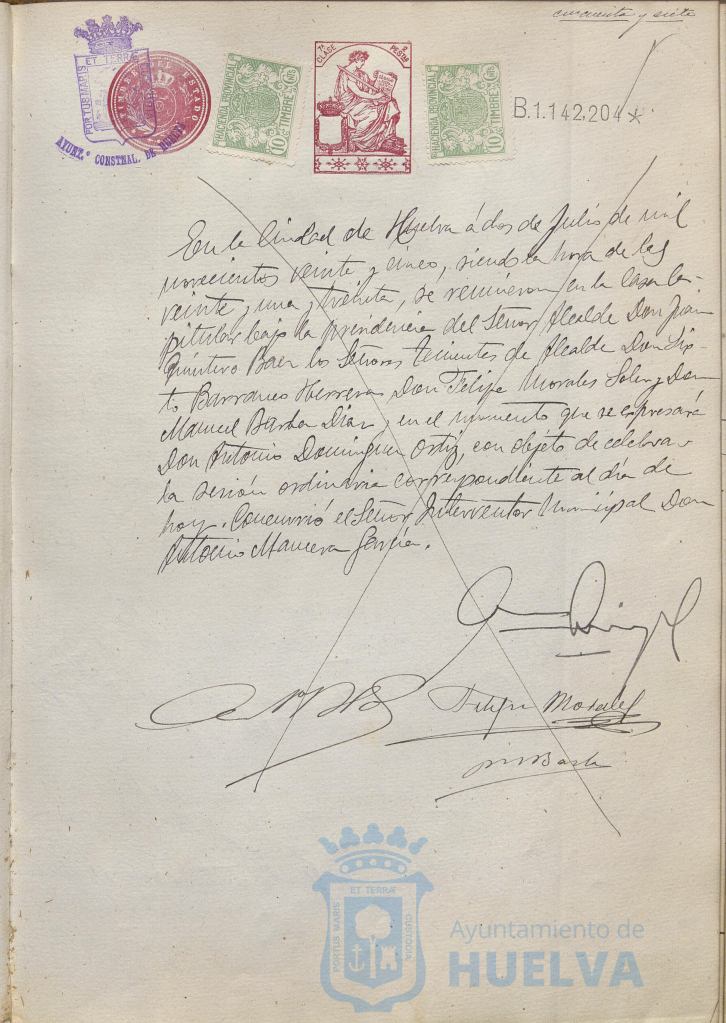 cincuenta y siete
PORTUS MARIS ET TERRÆ
AYUNT.º CONSTNAL. DE HUELVA
TIMBRE DEL ESTADO
HACIENDA PROVINCIAL
10 Cts
TIMBRE
7ª CLASE
2 PESTAS
HACIENDA PROVINCIAL
10 Cts
TIMBRE
B.1.142.204*
En la Ciudad de Huelva á dos de Julio de mil
novecientos veinte y cinco, siendo la hora de las
veinte y una y treinta, se reunieron en la Casa Ca-
pitular bajo la presidencia del Señor Alcalde Don Juan
Quintero Baez los Señores tenientes de Alcalde Don Six-
to Barranco Herrera Don Felipe Morales Soler y Don
Manuel Barba Díaz y en el momento que se expresará
Don Antonio Dominguez Ortiz, con objeto de celebrar
la sesión ordinaria correspondiente al día de
hoy. Concurrió el Señor Interventor Municipal Don
Antonio Garcia.
Felipe Morales
Barba
ET TERRÆ
PORTUS MARIS
CUSTODIA
Ayuntamiento de
HUELVA